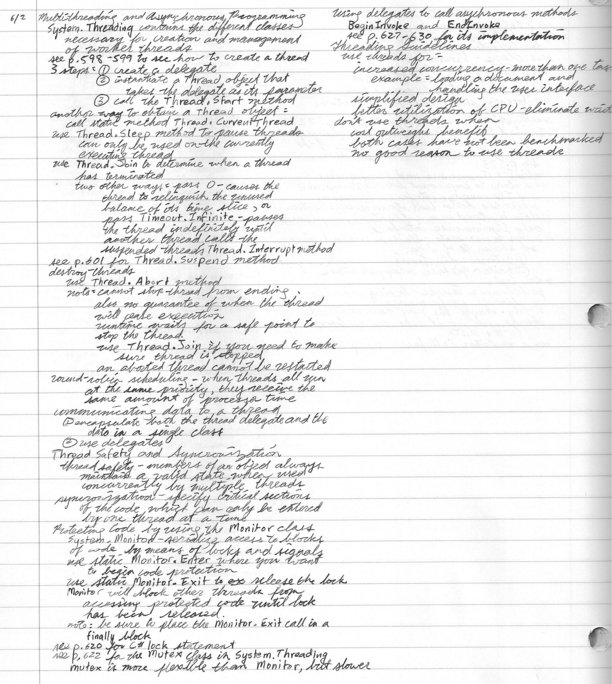 6/2 Multithreading and Asynchronous Programming
System.Threading contains the different classes
necessary for creation and management
of worker threads
see p.598-599 to see how to create a thread
3 steps: ① create a delegate
② instantiate a Thread object that
takes the delegate as its parameter
③ call the Thread.Start method
another way to obtain a Thread object =
call static method Thread.CurrentThread
use Thread.Sleep method to pause threads
can only be used on the currently
executing thread
use Thread.Join to determine when a thread
has terminated
two other ways = pass 0 - causes the
thread to relinquish the unused
balance of its time slice, or
pass Timeout.Infinite - pauses
the thread indefinitely until
another thread calls the
suspended threads Thread.Interrupt method
see p.601 for Thread.Suspend method
destroy threads
use Thread.Abort method
note: cannot stop thread from ending
also no guarantee of when the thread
will cease execution
runtime waits for a safe point to
stop the thread
use Thread.Join if you need to make
sure thread is stopped
an aborted thread cannot be restarted
round-robin scheduling - when threads all run
at the same priority, they receive the
same amount of processor time
communicating data to a thread
① encapsulate both the thread delegate and the
data in a single class
② use delegates
Thread Safety and Syncronization
thread safety - members of an object always
maintain a valid state when used
concurrently by multiple threads
syncronization - specify critical sections
of the code which can only be entered
by one thread at a time
Protecting Code by using the Monitor class
System.Monitor - serialize access to blocks
of code by means of locks and signals
use static Monitor.Enter where you want
to begin code protection
use static Monitor.Exit to release the lock
Monitor will block other threads from
accessing protected code until lock
has been released
note: be sure to place the Monitor.Exit call in a
finally block
see p.620 for C# lock statement
see p.622 for the Mutex class in System.Threading
mutex is more flexible than Monitor, but slower
using delegates to call asychronous methods
BeginInvoke and EndInvoke
see p.627-630 for its implementation
Threading Guidelines
use threads for =
increased concurrency - more than one
example = loading a document and
handling the user interface
simplified design
better utilization of CPU - eliminate
dont use threads when
cost outweighs benefit
both cases have not been benchmarked
no good reason to use threads